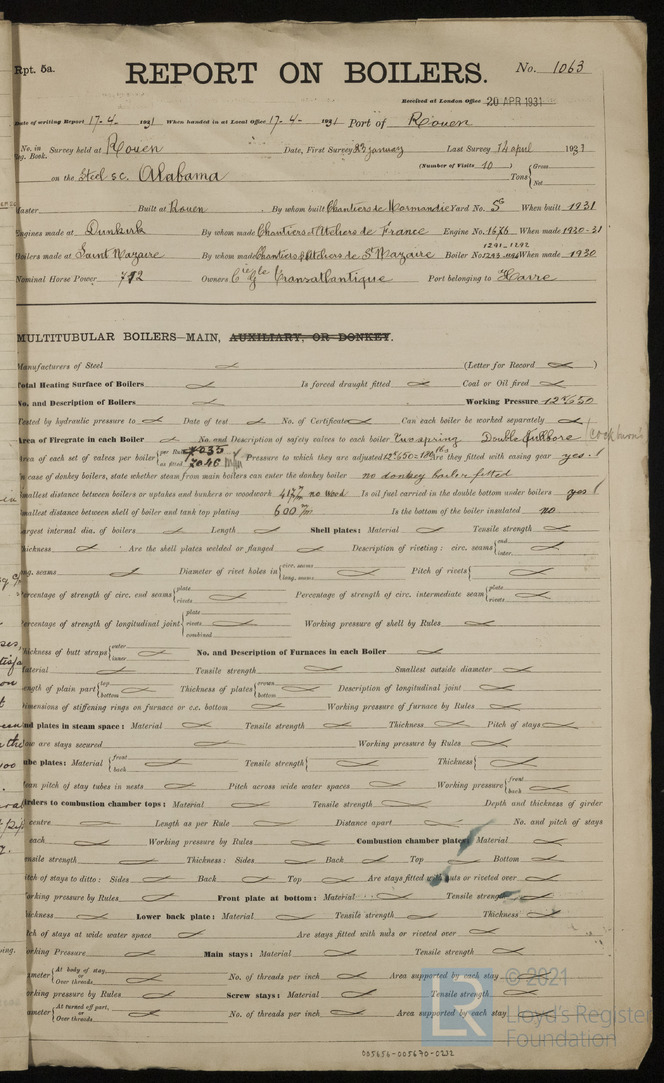 Rpt. 5a.
REPORT ON BOILERS.
No. 1063
Received at London Office 20 APR 1931
Date of writing Report 17-4- 1931 When handed in at Local Office 17-4- 1931 Port of Rouen
No. in Reg. Book. Survey held at Rouen Date, First Survey 23 January Last Survey 14 april 1931
(Number of Visits 10)
on the Steel sc. Alabama Tons { Gross Net
Master Built at Rouen By whom built Chantiers de Normandie Yard No. When built 1931
Engines made at Dunkirk By whom made Chantiers et Ateliers de France Engine No. 1676 When made 1930-31
Boilers made at Saint Nazaire By whom made Chantiers & Ateliers de St Nazaire Boiler No. 1291-1292 1293-1294 When made 1930
Nominal Horse Power 712 Owners Cie Gle Transatlantique Port belonging to Havre
MULTITUBULAR BOILERS—MAIN, AUXILIARY, OR DONKEY.
Manufacturers of Steel (Letter for Record )
Total Heating Surface of Boilers Is forced draught fitted Coal or Oil fired
No. and Description of Boilers Working Pressure 12K650
Tested by hydraulic pressure to Date of test No. of Certificate Can each boiler be worked separately
Area of Firegrate in each Boiler No. and Description of safety valves to each boiler Two spring Double Fullbore (Cockburn's
Area of each set of valves per boiler { per Rule 7035 as fitted 7046 Pressure to which they are adjusted 12K650=180 lbs Are they fitted with easing gear yes
In case of donkey boilers, state whether steam from main boilers can enter the donkey boiler no donkey boiler fitted
Smallest distance between boilers or uptakes and bunkers or woodwork no wood Is oil fuel carried in the double bottom under boilers yes
Smallest distance between shell of boiler and tank top plating 600 m/m Is the bottom of the boiler insulated no
Largest internal dia. of boilers Length Shell plates: Material Tensile strength
Thickness Are the shell plates welded or flanged Description of riveting: circ. seams { end inter.
long. seams Diameter of rivet holes in { circ. seams long. seams Pitch of rivets {
Percentage of strength of circ. end seams { plate rivets Percentage of strength of circ. intermediate seam { plate rivets
Percentage of strength of longitudinal joint { plate rivets combined Working pressure of shell by Rules
Thickness of butt straps { outer inner No. and Description of Furnaces in each Boiler
Material Tensile strength Smallest outside diameter
Length of plain part { top bottom Thickness of plates { crown bottom Description of longitudinal joint
Dimensions of stiffening rings on furnace or c.c. bottom Working pressure of furnace by Rules
End plates in steam space: Material Tensile strength Thickness Pitch of stays
How are stays secured Working pressure by Rules
Tube plates: Material { front back Tensile strength { Thickness {
Mean pitch of stay tubes in nests Pitch across wide water spaces Working pressure { front back
Girders to combustion chamber tops: Material Tensile strength Depth and thickness of girder
centre Length as per Rule Distance apart No. and pitch of stays
each Working pressure by Rules Combustion chamber plates: Material
Tensile strength Thickness: Sides Back Top Bottom
Pitch of stays to ditto: Sides Back Top Are stays fitted with nuts or riveted over
Working pressure by Rules Front plate at bottom: Material Tensile strength
Thickness Lower back plate: Material Tensile strength Thickness
Pitch of stays at wide water space Are stays fitted with nuts or riveted over
Working Pressure Main stays: Material Tensile strength
Diameter { At body of stay, or Over threads No. of threads per inch Area supported by each stay
Working pressure by Rules Screw stays: Material Tensile strength
Diameter { At turned off part, or Over threads No. of threads per inch Area supported by each stay
005656-005670-0232
LR
© 2021
Lloyd's Register
Foundation